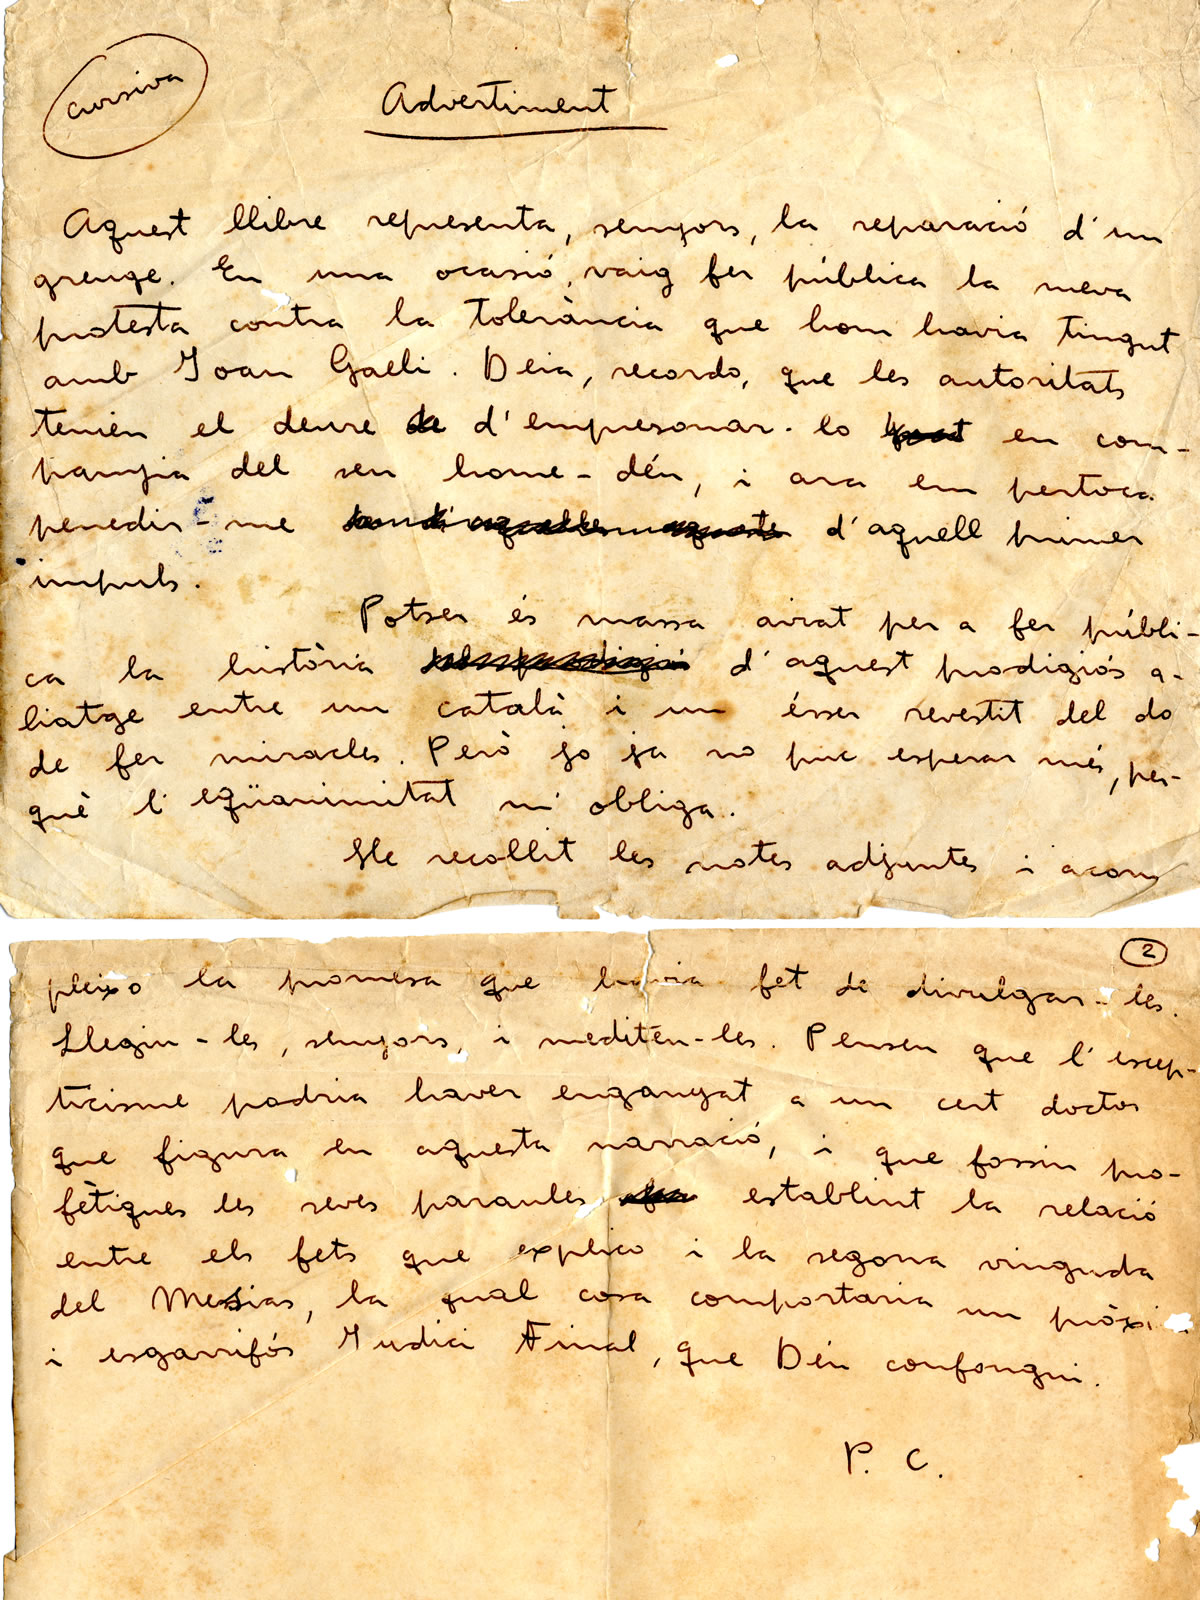 cursiva
Advertiment
Aquest llibre representa, senyors, la reparació d'un
greuge. En una ocasió, vaig fer pública la meva
protesta contra la tolerància que hom havia tingut
amb Joan Gaeli. Deia, recordo, que les autoritats
tenien el deure de d'empresonar-lo en com-
panyia del seu home-déu, i ara em pertoca
penedir-me d'aquell primer
impuls.
Potser és massa aviat per a fer públi-
ca la història d'aquest prodigiós a-
liatge entre un català i un ésser revestit del do
de fer miracles. Però jo ja no puc esperar més, per-
què l'eqüanimitat m'obliga.
He recollit les notes adjuntes i acom
2
pleixo la promesa que havia fet de divulgar-les.
Llegiu-les, senyors, i mediteu-les. Penseu que l'escep-
ticisme podria haver enganyat a un cert doctor
que figura en aquesta narració, i que fossin pro-
fètiques les seves paraules establint la relació
entre els fets que explico i la segona vinguda
del Messias, la qual cosa comportaria un pròxi
i esgarrifós Judici Final, que Déu confongui.
P. C.